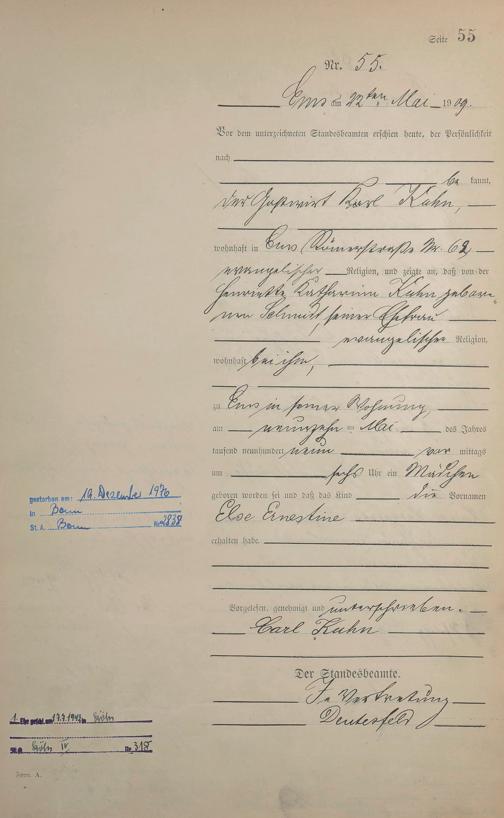 Seite 55
Nr. 55.
Ems am 22ten Mai 1909.
Vor dem unterzeichneten Standesbeamten erschien heute, der Persönlichkeit
nach
be kannt,
der Gastwirt Karl Kuhn,
wohnhaft in Ems Römerstraße Nr. 62
evangelischer Religion, und zeigte an, daß von der
Henriette Katharina Kuhn gebore-
nen Schmidt, seiner Ehefrau
evangelischer Religion,
wohnhaft bei ihm,
zu Ems in seiner Wohnung,
am neunzehn ten Mai des Jahres
tausend neunhundert neun vor mittags
um sechs Uhr ein Mädchen
geboren worden sei und daß das Kind die Vornamen
Else Ernestine
erhalten habe.
Vorgelesen, genehmigt und unterschrieben.
Carl Kuhn
Der Standesbeamte.
In Vertretung
gestorben am: 19. Dezember 1976
in Bonn
St. A. Bonn Nr. 2838
1. Ehe geschl. am 17.7.1942 in Köln
St. A. Köln IV Nr. 315
Form. A.